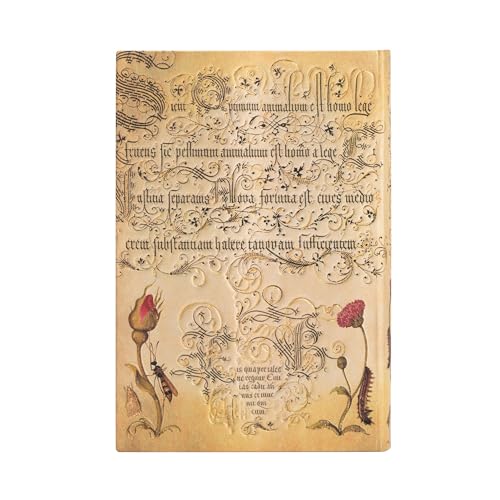 Sicut Optimum animalium est homo lege
fruens sic pessimum animalium est homo a lege E
Iustitia separatus Nova fortuna est cives medio
crem substantiam habere tanquam sufficientem
is quaper
ne regnur Civi
tas
nus et
mi om
cum